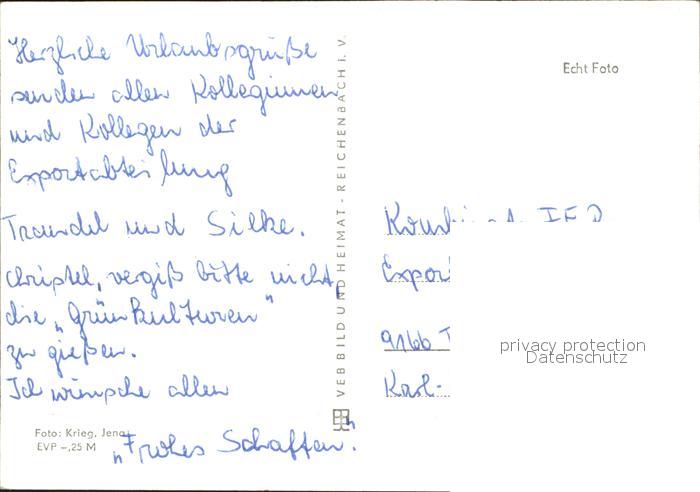 Herzliche Urlaubsgrüße
senden allen Kolleginnen
und Kollegen der
Exportabteilung
Traudel und Silke.
Christel, vergiß bitte nicht,
die „Grünkulturen"
zu gießen.
Ich wünsche allen
„Frohes Schaffen."
Foto: Krieg, Jena
EVP –,25 M
VEB BILD UND HEIMAT · REICHENBACH I. V.
Echt Foto
Expor
9166
Karl-
privacy protection
Datenschutz